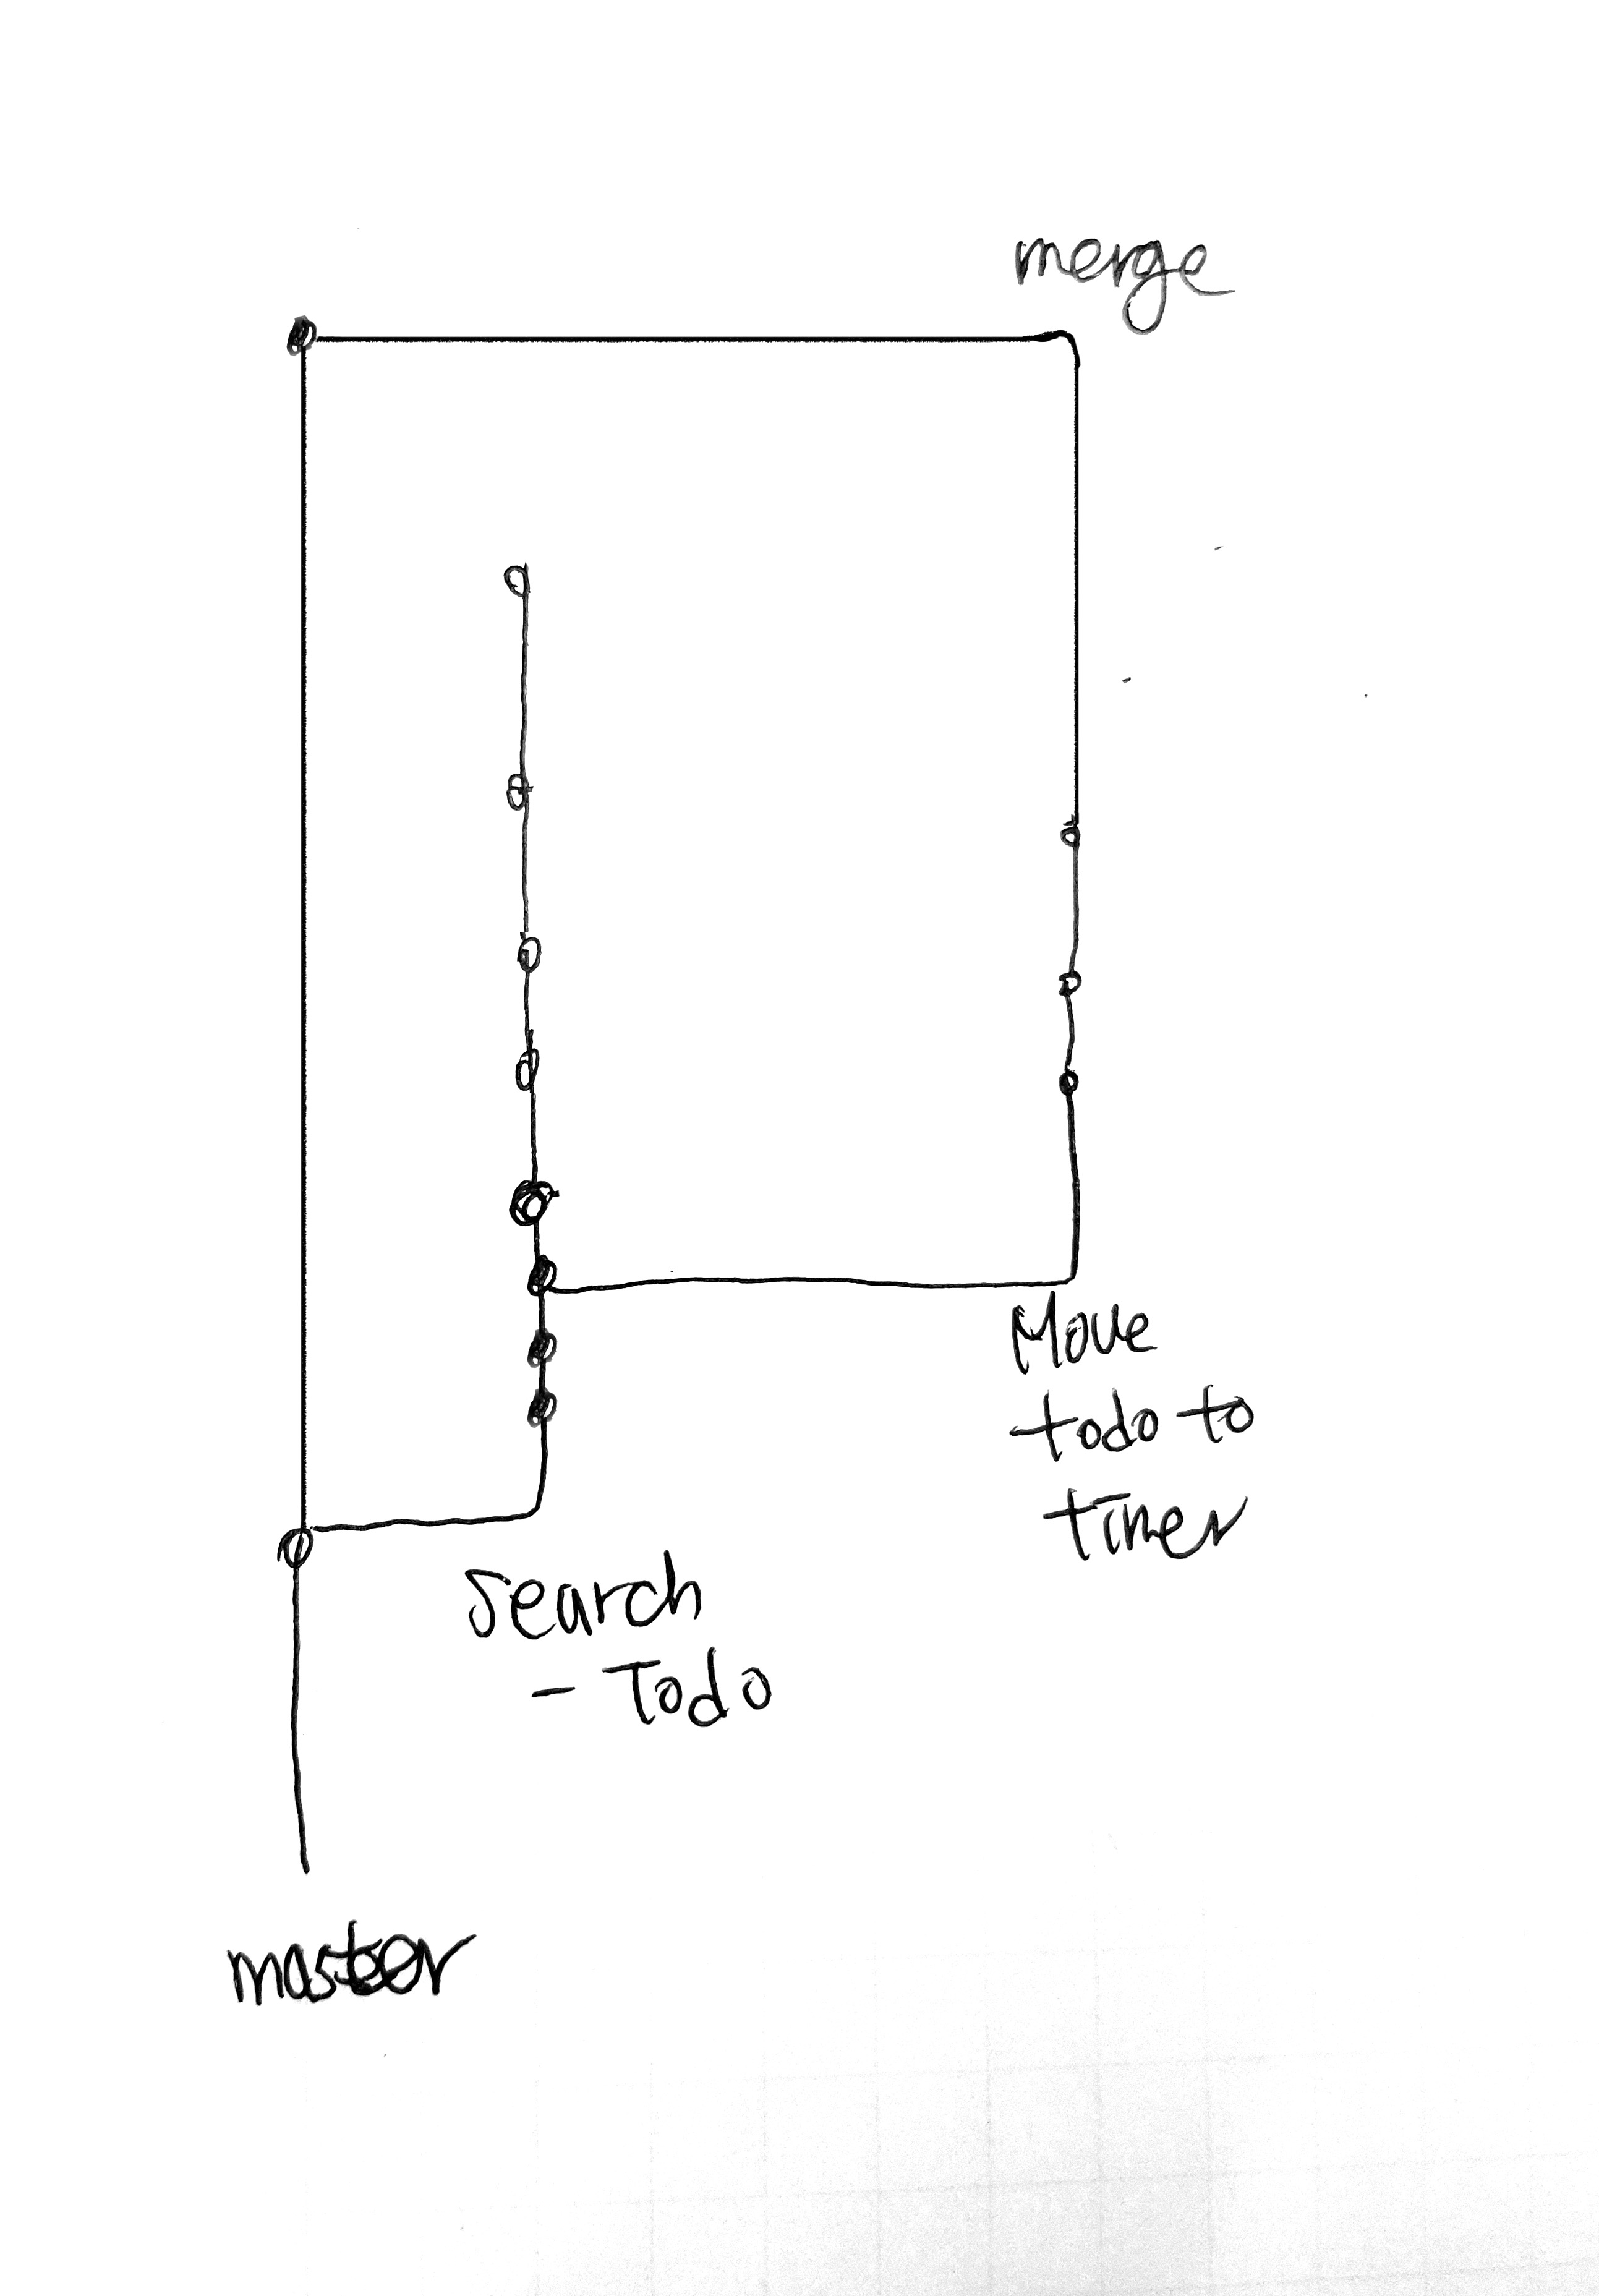 merge
Move
todo to
timer
Search
- Todo
master